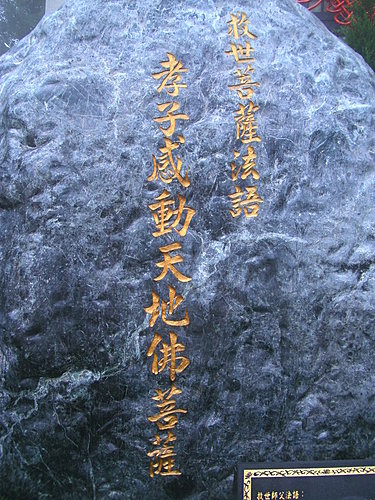 救世菩薩法語
孝子感動天地佛菩薩
救世師父法語：